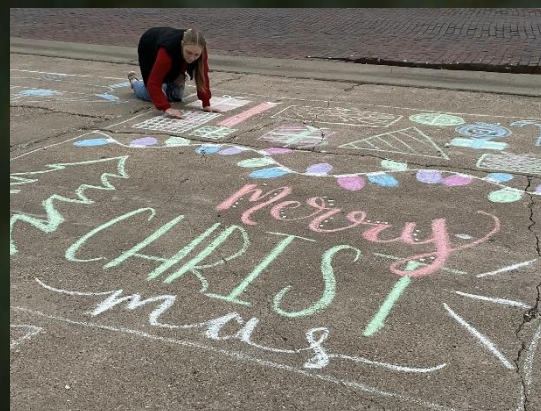 Merry
CHRIST
mas